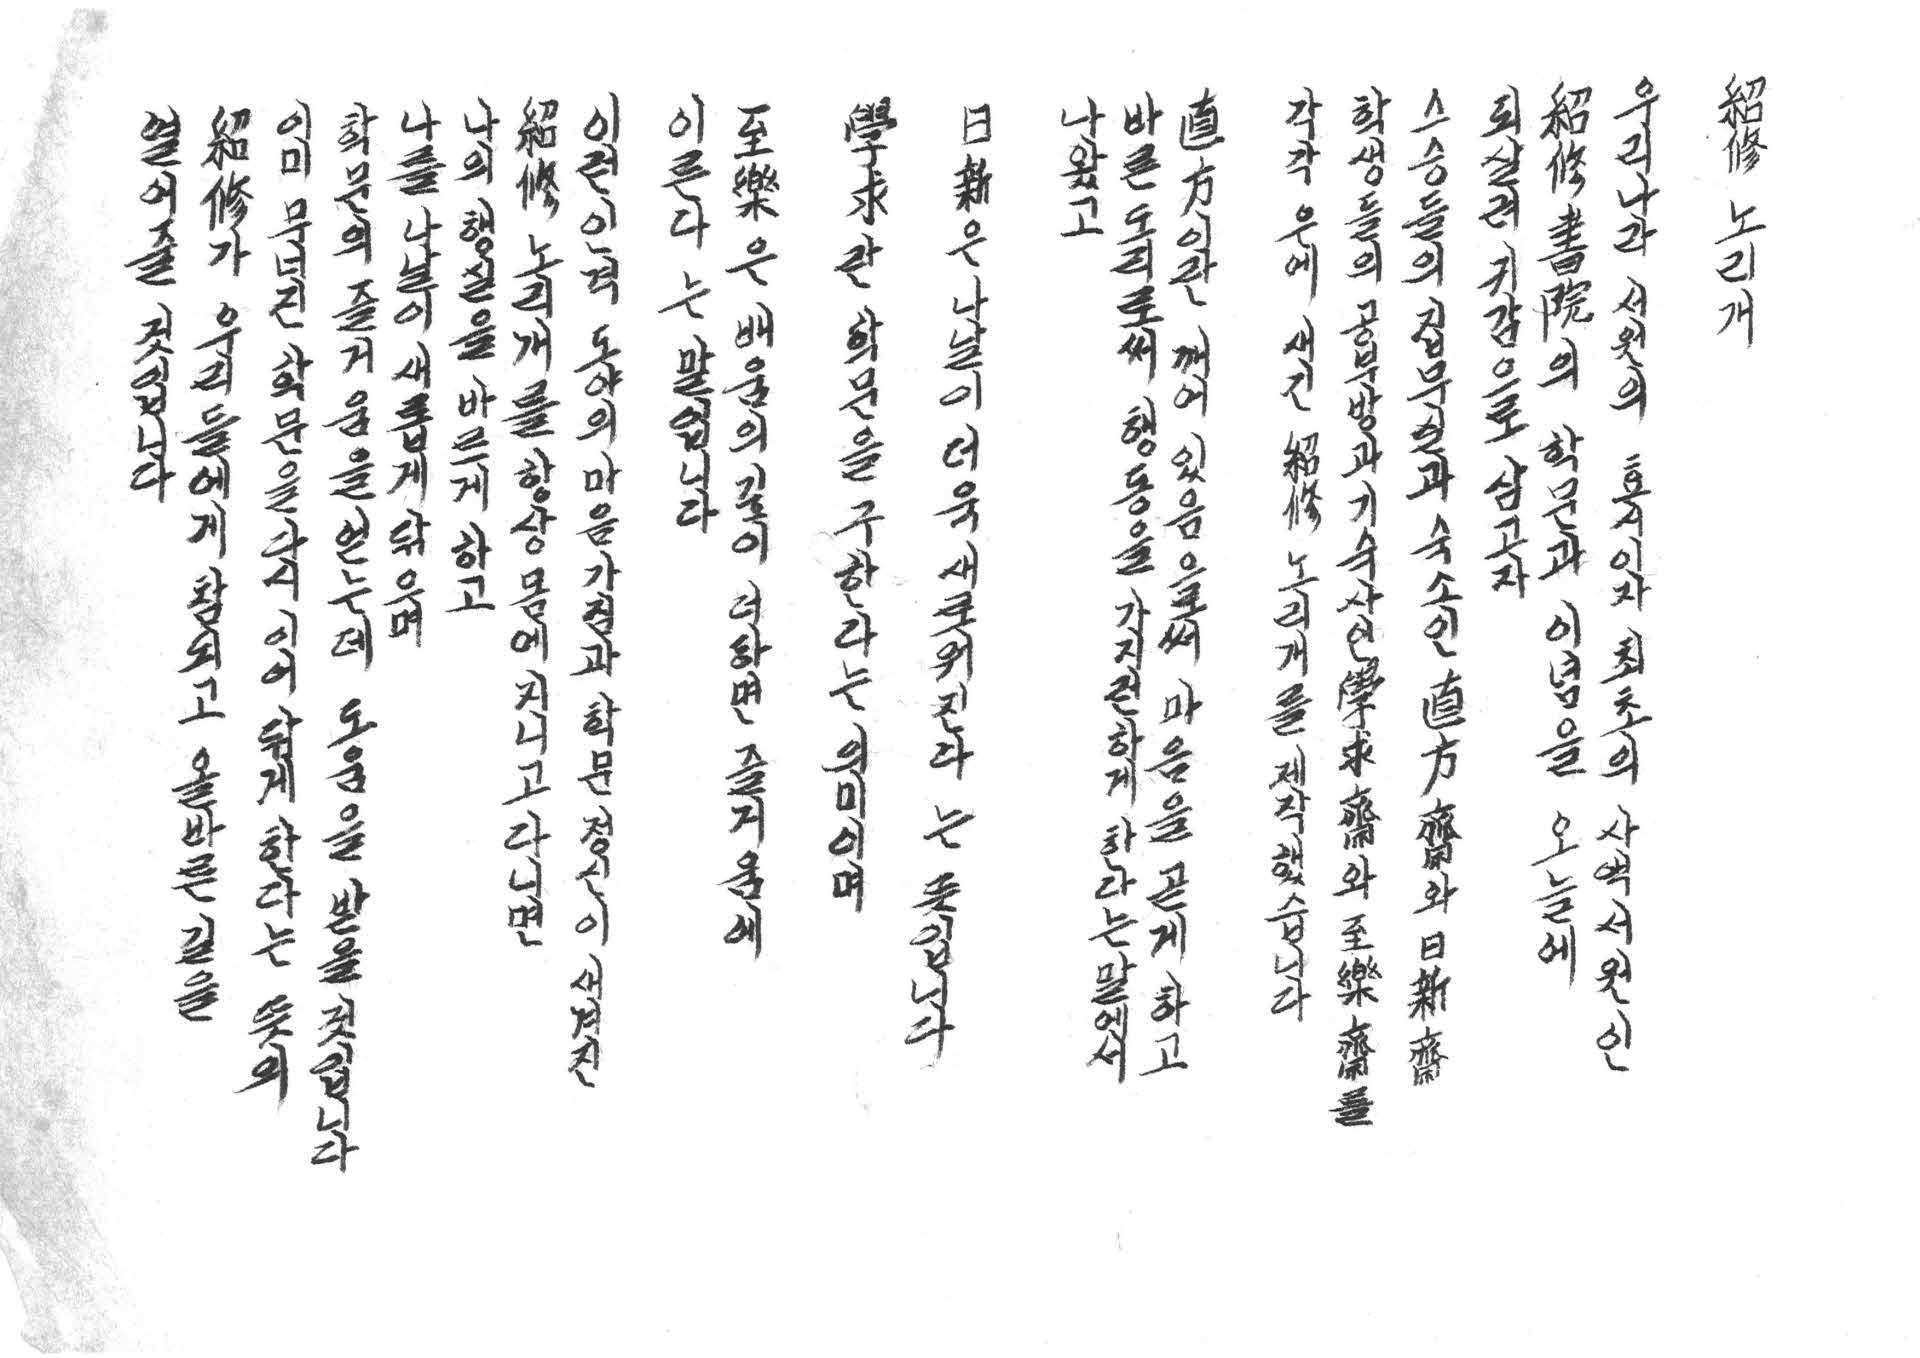 紹修 노리개
우리나라 서원의 효시이자 최초의 사액서원인
紹修書院의 학문과 이념을 오늘에
되살려 귀감으로 삼고자
스승들의 집무실과 숙소인 直方齋와 日新齋
학생들의 공부방과 기숙사인 學求齋와 至樂齋를
각각 은에 새긴 紹修 노리개를 제작했습니다
直方이란 깨어 있음으로써 마음을 곧게 하고
바른 도리로써 행동을 가지런하게 한다는 말에서
나왔고
日新은 나날이 더욱 새로워진다 는 뜻입니다
學求란 학문을 구한다는 의미이며
至樂은 배움의 깊이 더하면 즐거움에
이른다 는 말입니다
이런 인격 도야의 마음가짐과 학문 정신이 새겨진
紹修 노리개를 항상 몸에 지니고 다니면
나의 행실을 바르게 하고
나를 나날이 새롭게 닦으며
학문의 즐거움을 얻는데 도움을 받을 것입니다
이미 무너진 학문을 다시 이어 닦게 한다는 뜻의
紹修가 우리들에게 참되고 올바른 길을
열어줄 것입니다